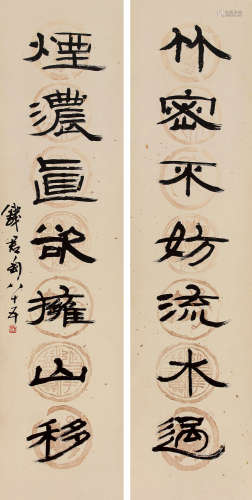 竹密不妨流水過
煙濃真欲擁山移
錢君匋八十五